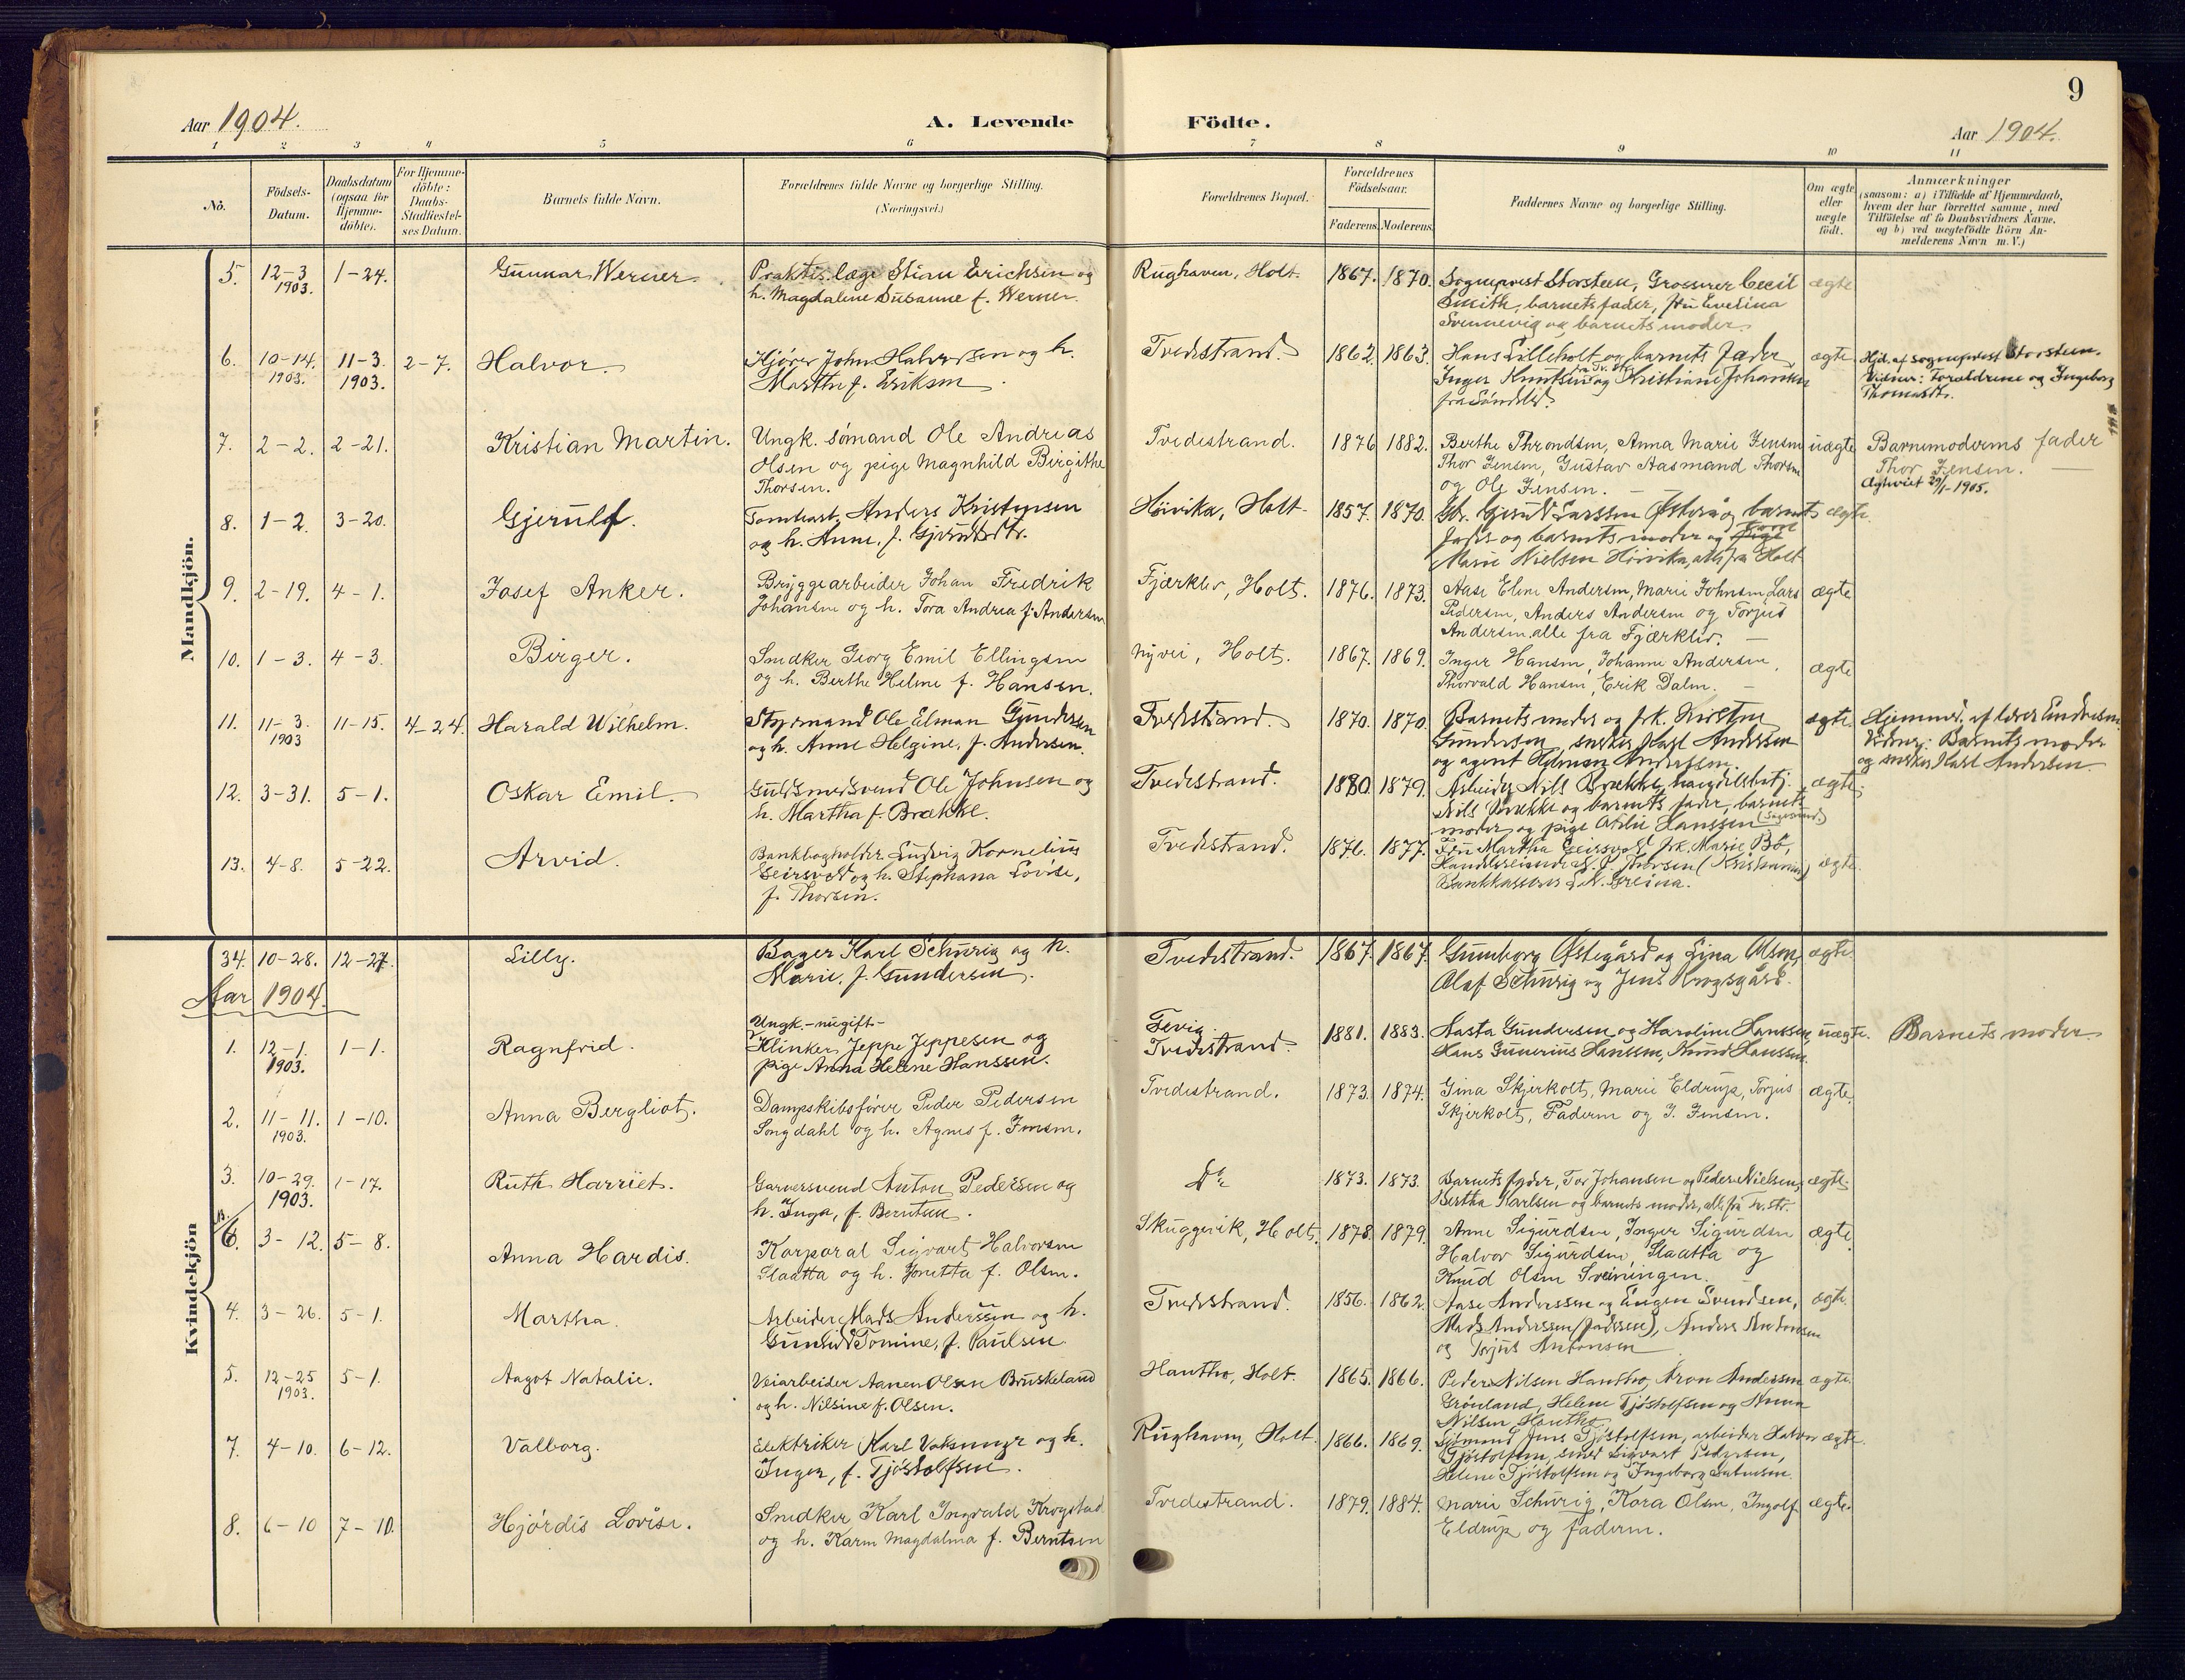 9
Aar 1904.
A. Levende Födte.
Aar 1904.
1 2 3 4 5 6 7 8 9 10 11
No.
Födsels-
Datum.
Daabsdatum
(ogsaa for
Hjemme-
döbte).
For Hjemme-
döbte:
Daabs-
Stadfæstel-
ses Datum.
Barnets fulde Navn.
Forældrenes fulde Navne og borgerlige Stilling.
(Næringsvei.)
Forældrenes Bopæl.
Forældrenes
Födselsaar.
Faderens. Moderens.
Faddernes Navne og borgerlige Stilling.
Om ægte
eller
uægte
födt.
Anmærkninger
(saasom: a) i Tilfælde af Hjemmedaab,
hvem der har forrettet samme, med
Tilföielse af to Daabsvidners Navne,
og b) ved uægtefödte Börn An-
melderens Navn m. V.)
Mandkjön.
5. 12-3 1903. 1-24. Gunnar Werner. Praktis. læge Stian Erichsen og
h. Magdalene Susanne f. Werner.
Rughaven, Holt. 1867. 1870. Sogneprest Storsteen, Grosserer Cecil
Smith, barnets fader, fru Evelina
Svennevig og barnets moder.
ægte
6. 10-14. 1903. 11-3 1903. 2-7. Halvor. Kjörer John Halvorsen og h.
Marthe f. Eriksen.
Tvedestrand. 1862. 1863. Hans Lilleholt og barnets fader,
Inger Knutsen og Kristiane Johansen
fra Söndeled.
ægte
Hjd. af sogneprest Storsteen.
Vidner: Forældrene og Ingeborg
Thomasdtr.
7. 2-2. 2-21. Kristian Martin. Ungk. sömand Ole Andreas
Olsen og pige Magnhild Birgithe
Thorsen.
Tvedestrand. 1876 1882. Berthe Throndsen, Anna Marie Jensen
Thor Jensen, Gustav Aasmand Thorsen
og Ole Jensen.
uægte
Barnemoderens fader
Thor Jensen.
Ægteviet 29/1-1905.
8. 1-2. 3-20. Gjerulf. Tomtearb. Anders Kristensen
og h. Anne, f. Gjeruldsdtr.
Höivika, Holt. 1857. 1870. Gbr. Gjeruld Larssen Österå og barnets
fader og barnets moder og
Marie Nielsen Höivika, alle fra Holt
ægte.
9. 2-19. 4-1. Josef Anker. Bryggearbeider Johan Fredrik
Johansen og h. Tora Andrea f. Andersen
Fjærkleiv, Holt. 1876. 1873. Aase Eline Andersen, Marie Johnsen, Lars
Pedersen, Anders Andersen og Torjus
Andersen, alle fra Fjærkleiv.
ægte
10. 1-3. 4-3. Birger. Snedker Georg Emil Ellingsen
og h. Berthe Helene f. Hansen.
Nyvei, Holt. 1867. 1869. Inger Hansen, Johanne Andersen,
Thorvald Hansen, Erik Dalen.
ægte
11. 11-3. 1903 11-15. 4-24. Harald Wilhelm. Styrmand Ole Elman Gundersen
og h. Anne Helgine, f. Andersen.
Tvedestrand. 1870. 1870. Barnets moder og frk. Kirstine
Gundersen, snekker Karl Andersen
og agent Herman Andersen.
ægte.
Hjemmed. af lærer Lindvesen.
Vidner: Barnets moder
og snekker Karl Andersen.
12. 3-31. 5-1. Oskar Emil. Guldsmedsvend Ole Johnsen og
h. Martha f. Brække.
Tvedestrand. 1880. 1879. Arbeider Nils Brække,
Nils Brække og barnets fader, barnets
moder og pige Otilie Hanssen
ægte.
13. 4-8. 5-22. Arvid. Bankbogholder Ludvig Kornelius
Geirsvold og h. Stephana Lovise,
f. Thorsen.
Tvedestrand. 1876. 1877. Fru Martha Geirsvold, frk. Marie Bö,
Handelsreisende N. P. Thorsen (Kristiania)
Bankkasserer
ægte.
Kvindekjön
34. 10-28. 12-27. Lilly. Bager Karl Schurig og h.
Marie, f. Gundersen.
Tvedestrand. 1867. 1867. Gunnborg Østegård og Lina Olsen,
Olaf Schurig og Jens Krogsgård.
ægte.
Aar 1904.
1. 12-1. 1903. 1-1. Ragnfrid. Ungk.-nugift-
Klinker Jeppe Jeppesen og
pige Anna Helene Hanssen.
Fevig.
Tvedestrand. 1881. 1883. Aasta Gundersen og Karoline Hanssen,
Hans Gunerius Hanssen, Knud Hanssen.
uægte. Barnets moder
2. 11-11. 1903. 1-10. Anna Bergliot. Dampskibsförer Peder Pedersen
Songdahl og h. Agnes f. Jensen.
Tvedestrand. 1873. 1874. Gina Skjerkolt, Marie Eldrup, Torjus
Skjerkolt, Faderen og J. Jensen.
ægte.
3. 10-29. 1903. 1-17. Ruth Harriet. Garversvend Anton Pedersen og
h. Inga, f. Berntsen.
Do 1873. 1873. Barnets fader, Tor Johansen og Peder Nielsen,
Bertha Karlsen og barnets moder, alle fra Tv.str.
ægte.
6. 3-12. 5-8. Anna Hardis. Korporal Sigvart Halvorsen
Slaatta og h. Jonetta f. Olsen.
Skuggevik, Holt. 1878. 1879. Anne Sigurdsen, Inger Sigurdsen
Halvor Sigurdsen, Slaatta og
Knud Olsen Sveiningen.
ægte.
4. 3-26. 5-1. Martha. Arbeider Mads Anderssen og h.
Gunhild Tomine, f. Paulsen.
Tvedestrand. 1856. 1862. Aase Anderssen og Eugen Svendsen,
Mads Anderssen (Faderen), Anders Antonsen
og Torjus Antonsen
ægte.
5. 12-25 1903. 5-1. Aagot Natalie. Veiarbeider Aanen Olsen Bruskeland
og h. Nilsine f. Olsen.
Hantho, Holt. 1865. 1866. Peder Nilsen Hantho, Aron Andersen
Grönland, Helene Tjöstolfsen og Anna
Nilsen Hantho
ægte.
7. 4-10. 6-12. Valborg. Elektriker Karl og h.
Inger, f. Tjöstolfsen.
Rughaven, Holt. 1866. 1869. Sjömand Jens Tjöstolfsen, arbeider Halvor
Tjöstolfsen, smed Sigvart Pedersen,
Helene Tjöstolfsen og Ingeborg
ægte.
8. 6-10 7-10. Hjördis Lovise. Snedker Karl Ingvald Krogstad
og h. Karen Magdalena f. Berntsen
Tvedestrand. 1879. 1884. Marie Schurig, Kora Olsen, Ingolf
Eldrup og faderen.
ægte.